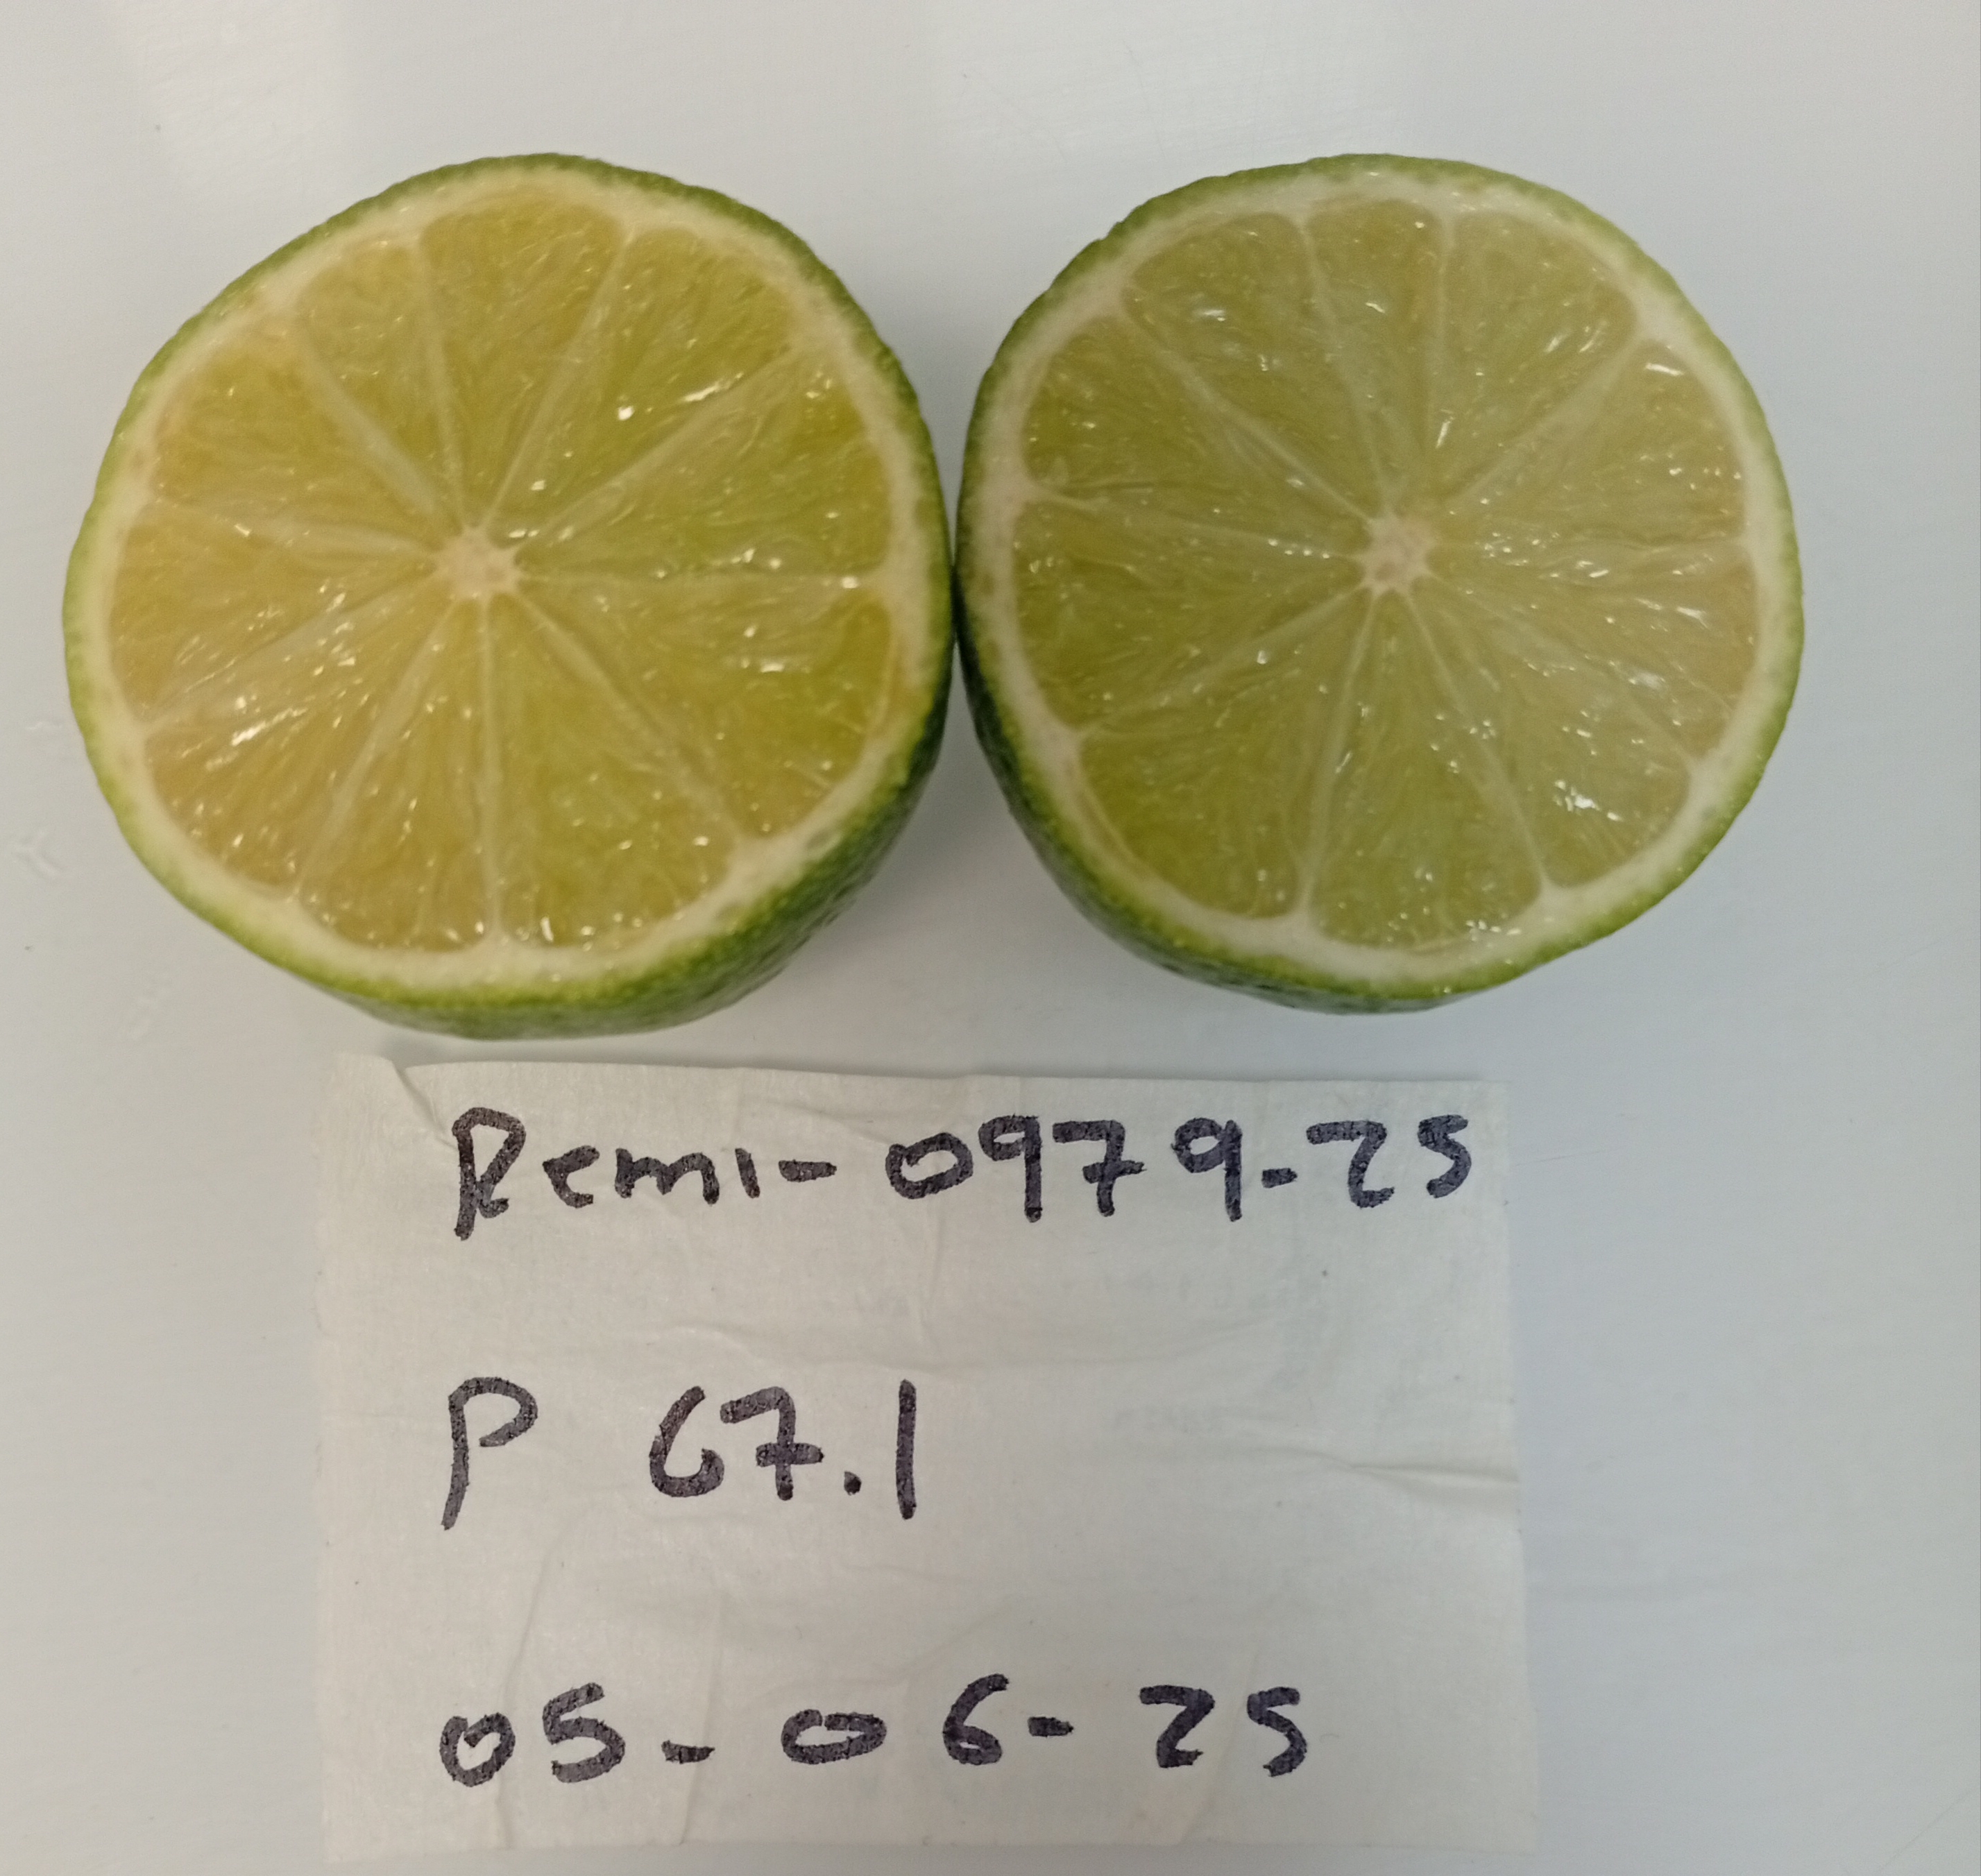 Remi-0979-25
P 67.1
05-06-25